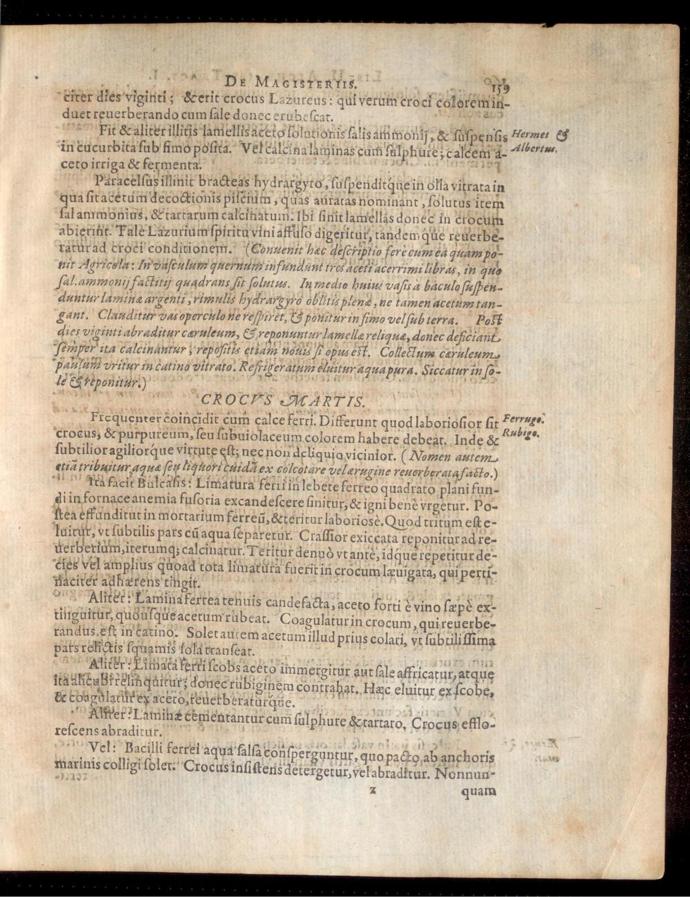 DE MAGISTERIIS. 159
citer dies viginti; & erit crocus Lazureus: qui verum croci colorem in-
duet reuerberando cum sale donec erubescat.
Fit & aliter illitis lamellis aceto solutionis salis ammonij, & suspensis
Hermes &
in cucurbita sub fimo posita. Vel calcina laminas cum sulphure; calcem a-
Albertus.
ceto irriga & fermenta.
Paracelsus illinit bracteas hydrargyro, suspenditque in olla vitrata in
qua sit acetum decoctionis piscium, quas auratas nominant, solutus item
sal ammonius, & tartarum calcinatum. Ibi sinit lamellas donec in crocum
abierint. Tale Lazurium spiritu vini affuso digeritur, tandemque reuerbe-
ratur ad croci conditionem. (Conuenit hæc descriptio fere cum ea quam po-
nit Agricola: In vasculum quernum infundunt tres aceti acerrimi libras, in quo
sal. ammonij factitij quadrans sit solutus. In medio huius vasis à baculo suspen-
duntur laminæ argenti, rimulis hydrargyro oblitis plenæ, ne tamen acetum tan-
gant. Clauditur vas operculo ne respiret, & ponitur in fimo vel sub terra. Post
dies viginti abraditur cæruleum, & reponuntur lamellæ reliquæ, donec deficiant
semper ita calcinantur, repositis etiam nouis si opus est. Collectum cæruleum
paulum vritur in catino vitrato. Refrigeratum eluitur aqua pura. Siccatur in so-
le & reponitur.)
CROCVS MARTIS.
Frequenter coincidit cum calce ferri. Differunt quod laboriosior sit
Ferrugo.
crocus, & purpureum, seu subuiolaceum colorem habere debeat. Inde &
Rubigo.
subtilior agiliorque virtute est; nec non deliquio vicinior. (Nomen autem
etiā tribuitur aquæ seu liquori cuidā ex colcotare vel ærugine reuerberata facto.)
Ita facit Bulcasis: Limatura ferri in lebete ferreo quadrato plani fun-
di in fornace anemia fusoria excandescere sinitur, & igni benè vrgetur. Po-
stea effunditur in mortarium ferreū, & teritur laboriosè. Quod tritum est e-
luitur, vt subtilis pars cū aqua separetur. Crassior exiccata reponitur ad re-
uerberium, iterumq; calcinatur. Teritur denuò vt antè, idque repetitur de-
cies vel amplius quoad tota limatura fuerit in crocum læuigata, qui perti-
naciter adhærens tingit.
Aliter: Lamina ferrea tenuis candefacta, aceto forti è vino sæpè ex-
tinguitur, quousque acetum rubeat. Coagulatur in crocum, qui reuerbe-
randus est in catino. Solet autem acetum illud prius colari, vt subtilissima
pars relictis squamis sola transeat.
Aliter: Limata ferri scobs aceto immergitur aut sale affricatur, atque
ita alicubi relinquitur; donec rubiginem contrahat. Hæc eluitur ex scobe,
& coagulatur ex aceto, reuerberaturque.
Aliter: Laminæ cementantur cum sulphure & tartaro. Crocus efflo-
rescens abraditur.
Vel: Bacilli ferrei aqua salsa consperguntur, quo pacto, ab anchoris
marinis colligi solet. Crocus insistens detergetur, vel abraditur. Nonnun-
z quam